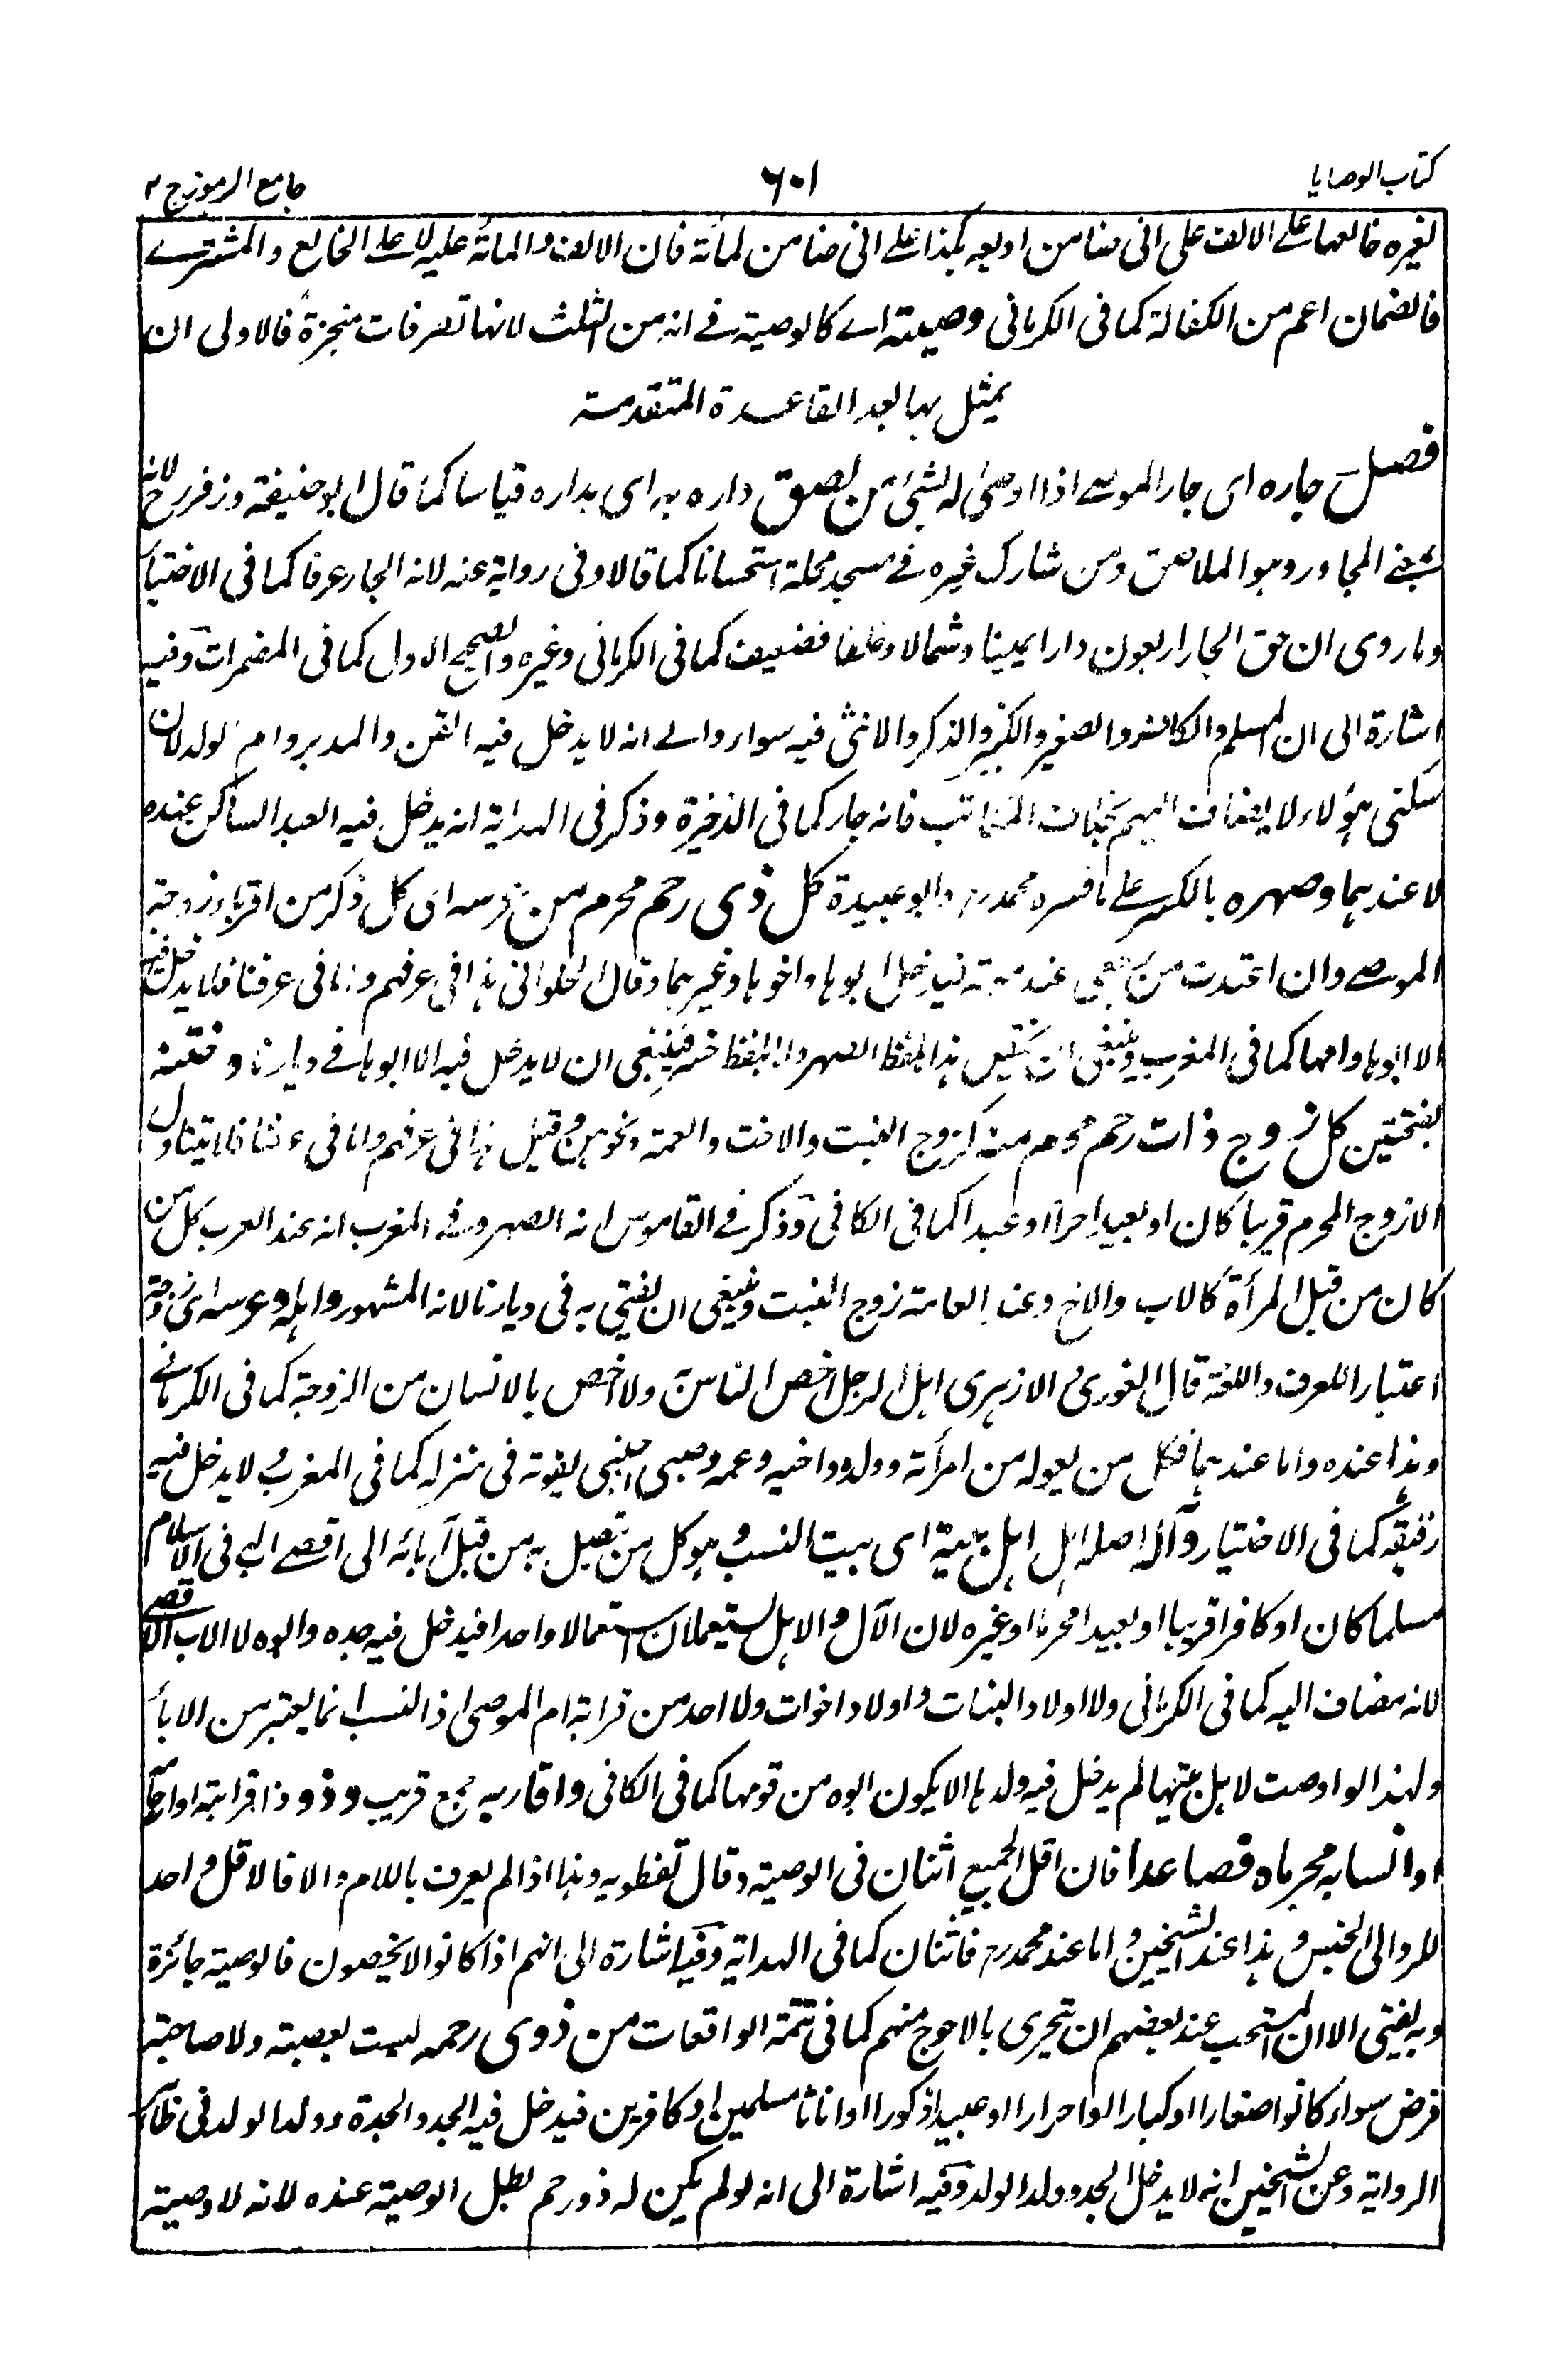 كتاب الوصايا
٦٠١
جامع الرموز ج ٢
لغيره خالعها على الالف على انى ضامن او بعه بكذا على انى ضامن لمائة فان الالف والمائة عليه لا على الخالع والمشترى
فالضمان اعم من الكفالة كما فى الكرمانى وصيته اى كالوصية فى انه من الثلث لانها تصرفات منجزة فالاولى ان
يمثل بها بعد القاعدة المتقدمة
فصل جاره اى جار الموصى اذا اوصى له بشئ من لصق داره به اى بداره قياسا كما قال ابو حنيفة وزفر رح لانه
المجاور وهو الملاصق ومن شارك غيره فى مسجد محلة استحسانا كما قالا وفى رواية عنه لانه الجار عرفا كما فى الاختيا
وما روى ان حق الجار اربعون دارا يمينا وشمالا وخلفا فضعيف كما فى الكرمانى وغيره والصحيح الاول كما فى المضمرات وفيه
اشارة الى ان المسلم والكافر والصغير والكبير والذكر والانثى فيه سواء والى انه لا يدخل فيه القن والمدبر وام الولد لان
سكنى هؤلاء لا يضاف اليهم بخلاف المكاتب فانه جار كما فى الذخيرة وذكر فى الهداية انه يدخل فيه العبد الساكن عنده
لا عندهما وصهره بالكسر على ما فسره محمد رح وابو عبيدة كل ذى رحم محرم من عرسه اى كل ذكر من اقرباء زوجة
الموصى وان اعتدت من رجعى عند موته فيدخل ابوها واخوها وغيرهما وقال الحلوانى هذا فى عرفهم واما فى عرفنا فلا يدخل فيه
الا ابوها وامها كما فى المغرب وينبغى ان هذا بلفظ الصهر واما بلفظ خسر فينبغى ان لا يدخل فيه الا ابوها فى ديارنا وختنه
بفتحتين كل زوج ذات رحم محرم منه كزوج البنت والاخت والعمة ونحوهن وقيل هذا فى عرفهم واما فى عرفنا فلا يتناول
الا زوج المحرم قريبا كان او بعيدا حرا او عبدا كما فى الكافى وذكر فى القاموس انه الصهر وفى المغرب انه عند العرب كل من
كان من قبل المرأة كالاب والاخ وعند العامة زوج البنت وينبغى ان يفتى به فى ديارنا لانه المشهور واهله عرسه اى زوجة
اعتبارا للعرف واللغة قال الغورى والازهرى اهل الرجل اخص الناس به ولا اخص بالانسان من الزوجة كما فى الكرمانى
وهذا عنده واما عندهما فكل من يعوله من امرأته وولده واخيه وعمه وصبى اجنبى يقوته فى منزله كما فى المغرب ولا يدخل فيه
رقيقه كما فى الاختيار وآله اصله اهل اهل بيته اى بيت النسب وهو كل من يتصل به من قبل آبائه الى اقصى اب فى الاسلام
مسلما كان او كافرا قريبا او بعيدا محرما او غيره لان الآل والاهل يستعملان استعمالا واحدا فيدخل فيه جده وابوه لا الاب الاقصى
لانه مضاف اليه كما فى الكرمانى ولا اولاد البنات واولاد اخوات ولا احد من قرابة ام الموصى اذ النسب انما يعتبر من الابأ
ولهذا لو اوصت لاهل بيتها لم يدخل فيه ولدها الا يكون ابوه من قومها كما فى الكافى واقاربه جمع قريب وذو وذا قرابته او ارحامه
او انسابه محرماه فصاعدا فان اقل الجمع اثنان فى الوصية وقال نفطويه وهذا اذا لم يعرف باللام والا فالاقل واحد
للرد الى الجنس وهذا عند الشيخين واما عند محمد رح فاثنان كما فى الهداية وفيه اشارة الى انهم اذا كانوا لا يحصون فالوصية جائزة
وبه يفتى الا ان المستحب عند بعضهم ان يتحرى بالاحوج منهم كما فى تتمة الواقعات من ذوى رحمه ليست بعصبته ولا صاحبة
فرض سواء كانوا صغارا او كبارا او احرارا او عبيدا ذكورا او اناثا مسلمين او كافرين فيدخل فيه الجد والجدة وولد الولد فى ظاهر
الرواية وعن الشيخين انه لا يدخل الجد وولد الولد وفيه اشارة الى انه لو لم يكن له ذو رحم بطل الوصية عنده لانه لا وصية